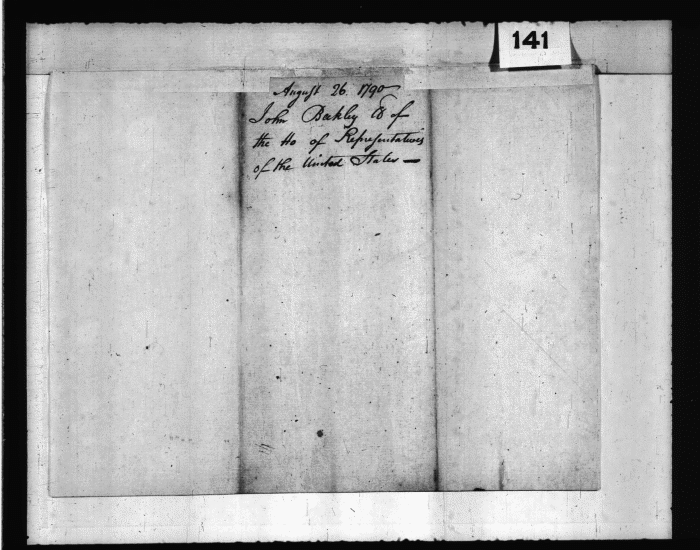 141
August 26. 1790
John Beckley Cl of
the Ho of Representatives
of the United States —